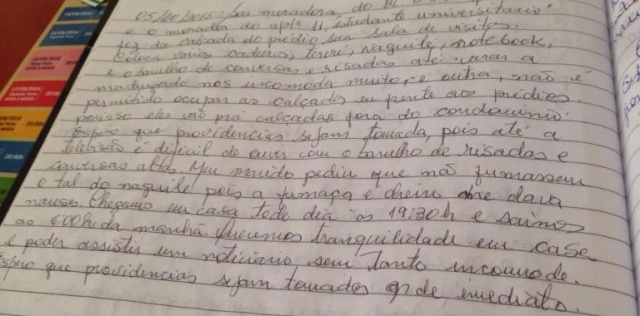 05/10 bois: Sou moradora do Bl
e o morador do apto 11, estudante universitário
fez da calçada do prédio sua sala de visitas.
Coloca varias cadeiras, tereré, naguile, notebook,
e o barulho de conversas e risadas até varar a
madrugada nos incomoda muito, e outra, não é
permitido ocupar as calçadas em frente aos prédios.
posso eles vão prá calçadas fora do condominio.
Espero que providencias sejam tomada, pois até a
televisão é difícil de ouvir com o barulho de risadas e
conversas altas. Meu marido pediu que não fumassem
o tal do naguile pois a fumaça e cheiro me dava
nauseas. Chegamos em casa todo dia as 19:30h e saimos
as 6:00h da manhã. Queremos tranquilidade em casa
e poder assistir um noticiário sem tanto incomodo.
Espero que providencias sejam tomadas de imediato.